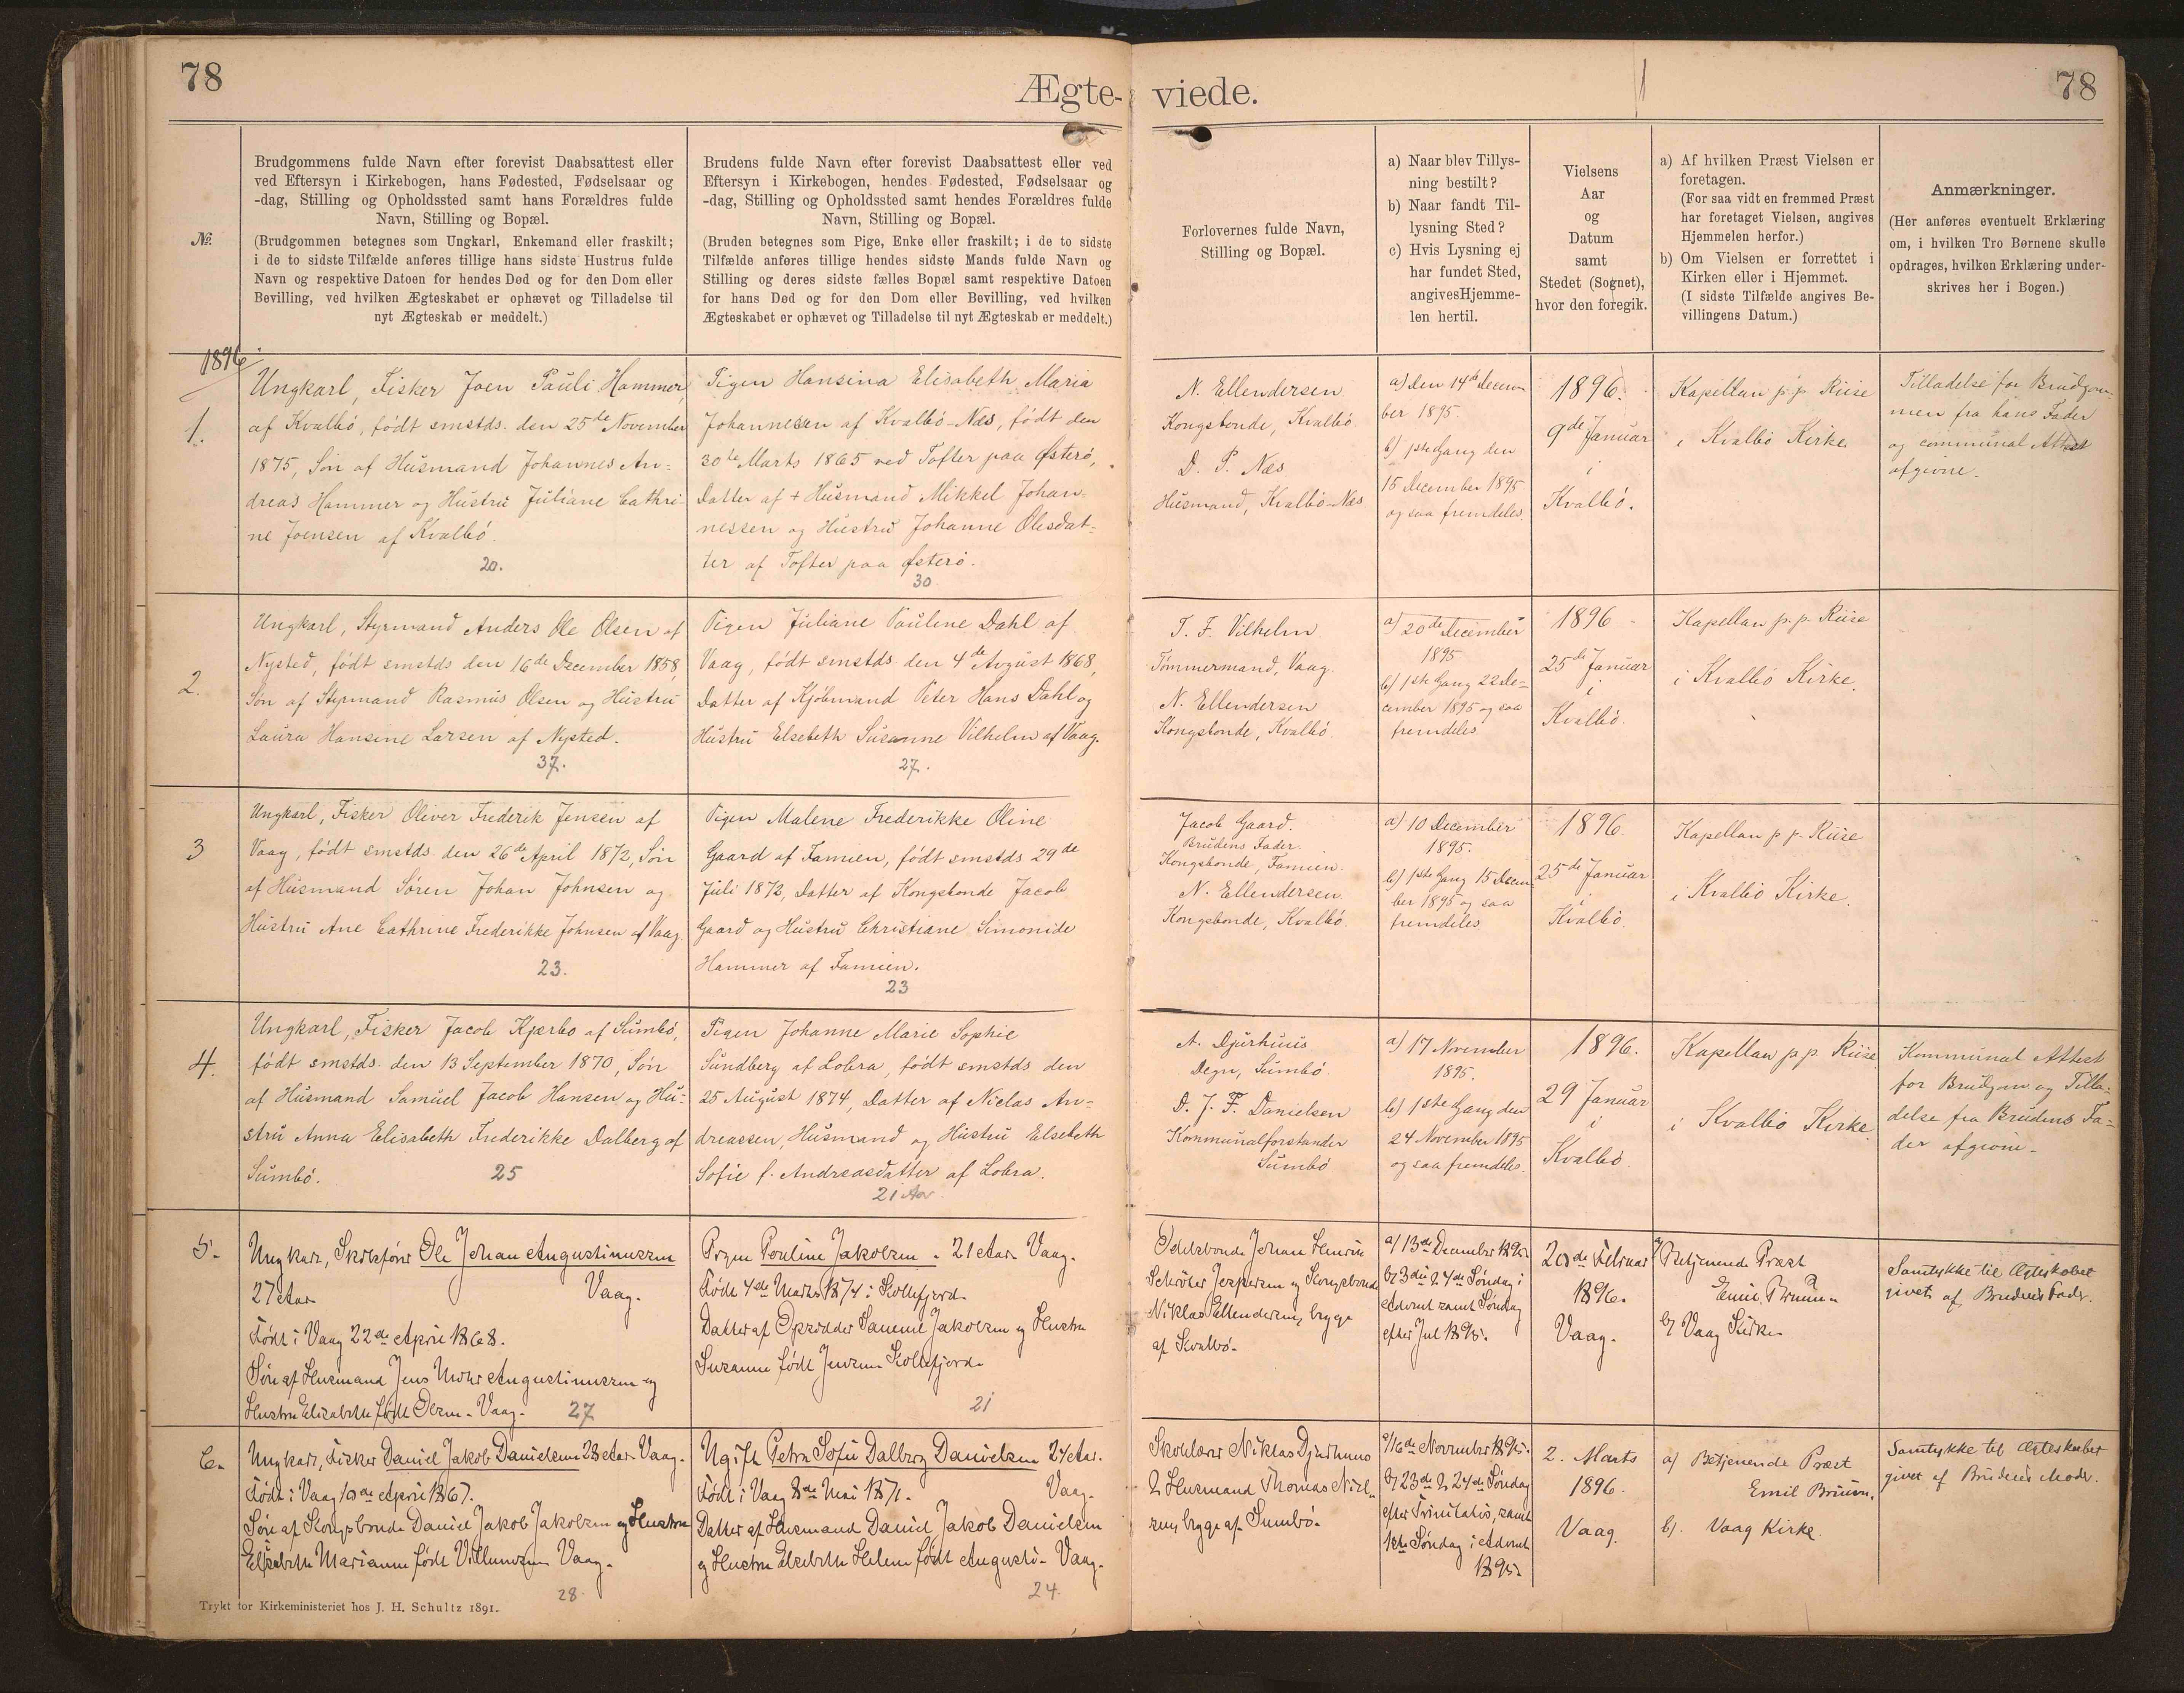 78
Ægte-
viede.
78
№.
Brudgommens fulde Navn efter forevist Daabsattest eller
ved Eftersyn i Kirkebogen, hans Fødested, Fødselsaar og
-dag, Stilling og Opholdssted samt hans Forældres fulde
Navn, Stilling og Bopæl.
(Brudgommen betegnes som Ungkarl, Enkemand eller fraskilt;
i de to sidste Tilfælde anføres tillige hans sidste Hustrus fulde
Navn og respektive Datoen for hendes Død og for den Dom eller
Bevilling, ved hvilken Ægteskabet er ophævet og Tilladelse til
nyt Ægteskab er meddelt.)
Brudens fulde Navn efter forevist Daabsattest eller ved
Eftersyn i Kirkebogen, hendes Fødested, Fødselsaar og
-dag, Stilling og Opholdssted samt hendes Forældres fulde
Navn, Stilling og Bopæl.
(Bruden betegnes som Pige, Enke eller fraskilt; i de to sidste
Tilfælde anføres tillige hendes sidste Mands fulde Navn og
Stilling og deres sidste fælles Bopæl samt respektive Datoen
for hans Død og for den Dom eller Bevilling, ved hvilken
Ægteskabet er ophævet og Tilladelse til nyt Ægteskab er meddelt.)
Forlovernes fulde Navn,
Stilling og Bopæl.
a) Naar blev Tillys-
ning bestilt?
b) Naar fandt Til-
lysning Sted?
c) Hvis Lysning ej
har fundet Sted,
angives Hjemme-
len hertil.
Vielsens
Aar
og
Datum
samt
Stedet (Sognet),
hvor den foregik.
a) Af hvilken Præst Vielsen er
foretagen.
(For saa vidt en fremmed Præst
har foretaget Vielsen, angives
Hjemmelen herfor.)
b) Om Vielsen er forrettet i
Kirken eller i Hjemmet.
(I sidste Tilfælde angives Be-
villingens Datum.)
Anmærkninger.
(Her anføres eventuelt Erklæring
om, i hvilken Tro Børnene skulle
opdrages, hvilken Erklæring under-
skrives her i Bogen.)
1896
1.
Ungkarl, Fisker Joen Pauli Hammer,
af Kvalbö, födt smstds. den 25de November
1875, Sön af Husmand Johannes An=
dreas Hammer og Hustru Juliane Cathri-
ne Joensen af Kvalbö.
20.
Pigen Hansina Elisabeth Maria
Johannesen af Kvalbö-Næs, födt den
30te Marts 1865 ved Tofter paa Østerö,
Datter af + Husmand Mikkel Johan=
nessen og Hustru Johanne Olesdat=
ter af Tofter paa Østerö.
30
N. Ellendersen
Kongsbonde, Kvalbö
D. P. Næs
Husmand, Kvalbö-Næs
a) Den 14de Decem
ber 1895.
b) 1ste Gang den
15 December 1895
og saa fremdeles.
1896.
9de Januar
i
Kvalbö.
Kapellan p.p. Riise
i Kvalbö Kirke.
Tilladelse for Brudgom-
men fra hans Fader
og communal Attest
afgivne.
2.
Ungkarl, Styrmand Anders Ole Olsen af
Nysted, födt smstds den 16de December 1858,
Sön af Styrmand Rasmus Olsen og Hustru
Laura Hansine Larsen af Nysted.
37.
Pigen Juliane Pauline Dahl af
Vaag, födt smstds. den 4de August 1868,
Datter af Kjöbmand Peter Hans Dahl og
Hustru Elsebeth Susanne Vilhelm af Vaag.
27.
T. F. Vilhelm
Tömmermand, Vaag.
N. Ellendersen
Kongsbonde, Kvalbö.
a) 20de December
1895
b) 1ste Gang 22 De=
cember 1895 og saa
fremdeles
1896
25de Januar
i
Kvalbö.
Kapellan p.p. Riise
i Kvalbö Kirke.
3
Ungkarl, Fisker Oliver Frederik Jensen af
Vaag, födt smstds. den 26de April 1872, Sön
af Husmand Sören Johan Johnsen og
Hustru Ane Cathrine Frederikke Johnsen af Vaag.
23.
Pigen Malene Frederikke Oline
Gaard af Famien, födt smstds 29de
Juli 1872, Datter af Kongsbonde Jacob
Gaard og Hustru Christiane Simonide
Hammer af Famien.
23
Jacob Gaard.
Brudens Fader.
Kongsbonde, Famien.
N. Ellendersen
Kongsbonde, Kvalbö.
a) 10 December
1895.
b) 1ste Gang 15 Decem
ber 1895 og saa
fremdeles
1896
25de Januar
i
Kvalbö.
Kapellan p.p. Riise
i Kvalbö Kirke.
4.
Ungkarl, Fisker Jacob Kjærbo af Sumbö,
födt smstds. den 13 September 1870, Sön
af Husmand Samuel Jacob Hansen og Hu=
stru Anna Elisabeth Frederikke Dalberg af
Sumbö.
25
Pigen Johanne Marie Sophie
Sundberg af Lobra, födt smstds den
25 August 1874, Datter af Niclas An=
dreassen, Husmand og Hustru Elsebeth
Sofie f. Andreasdatter af Lobra.
21 Aar
A. Djurhuus
Degn, Sumbö.
D. J. F. Danielsen
Kommunalforstander
Sumbö
a) 17 November
1895.
b) 1ste Gang den
24 November 1895
og saa fremdeles.
1896.
29 Januar
i
Kvalbö.
Kapellan p.p. Riise
i Kvalbö Kirke.
Kommunal Attest
for Brudgom og Tilla=
delse fra Brudens Fa=
der afgivne.
5.
Ungkarl, Skibsfører Ole Johan Augustinussen
27 Aar Vaag.
Født i Vaag 22de April 1868.
Søn af Husmand Jens Mohr Augustinussen og
Hustru Elisabeth født Olsen. Vaag. 27
Pigen Pouline Jakobsen. 21 Aar. Vaag.
Født 4de Marts 1874 i Kollefjord.
Datter af Opsidder Samuel Jakobsen og Hustru
Susanne født Jensen Kollefjord.
21
Odelsbonde Johan Henrik
Schröter Jespersen og Kongsbonde
Niklas Ellendersen, begge
af Kvalbø.
a) 13de December 1895.
b) 3die & 4de Søndag i
Advent samt Søndag
efter Jul 1895.
20de Februar
1896.
Vaag.
a) Betjenende Præst
Emil Bruun.
b) Vaag Kirke.
Samtykke til Ægteskabet
givet af Brudens Fader.
6.
Ungkarl, Fisker Daniel Jakob Danielsen 28 Aar. Vaag.
Født i Vaag 10de April 1867.
Søn af Kongsbonde Daniel Jakob Jakobsen og Hustru
Elsebeth Marianne født Vilhelmsen Vaag.
28.
Ugift Petra Sofie Dalberg Danielsen 24 Aar.
Født i Vaag 8de Mai 1871. Vaag.
Datter af Husmand Daniel Jakob Danielsen
og Hustru Elsebeth Helene født Augusti. Vaag.
24.
Skolelærer Niklas Djurhuus
& Husmand Thomas Niel-
sen, begge af Sumbø.
a) 16de November 1895.
b) 23de & 24de Søndag
efter Trinitatis, samt
1ste Søndag i Advent
1895.
2. Marts
1896.
Vaag.
a) Betjenende Præst
Emil Bruun.
b). Vaag Kirke.
Samtykke til Ægteskabet
givet af Brudens Moder.
Trykt for Kirkeministeriet hos J. H. Schultz 1891.